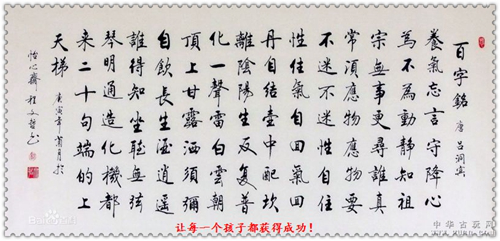 百字銘 唐 呂洞賓
養氣忘言守降心
為不為動靜知祖
宗無事更尋誰真
常須應物應物要
不迷不迷性自住
性住氣自回氣回
丹自結壺中配坎
離陰陽生反復普
化一聲雷白雲朝
頂上甘露洒須彌
自飲長生酒逍遥
誰得知坐聽無弦
琴明通造化機都
來二十句端的上
天梯
庚寅年 月於
怡心齋 程文
让每一个孩子都获得成功！
Bai 百科
中华古玩网